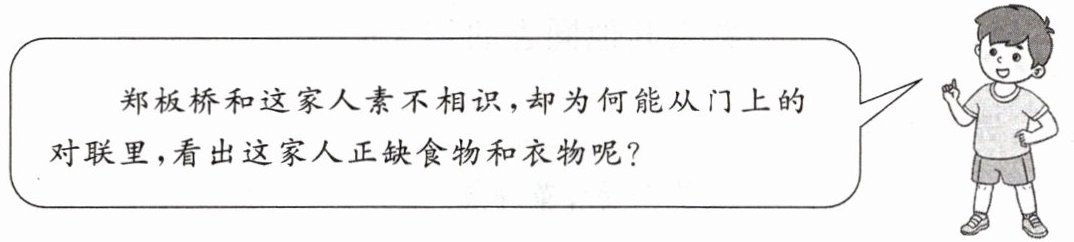 郑板桥和这家人素不相识,却为何能从门上的
对联里,看出这家人正缺食物和衣物呢?